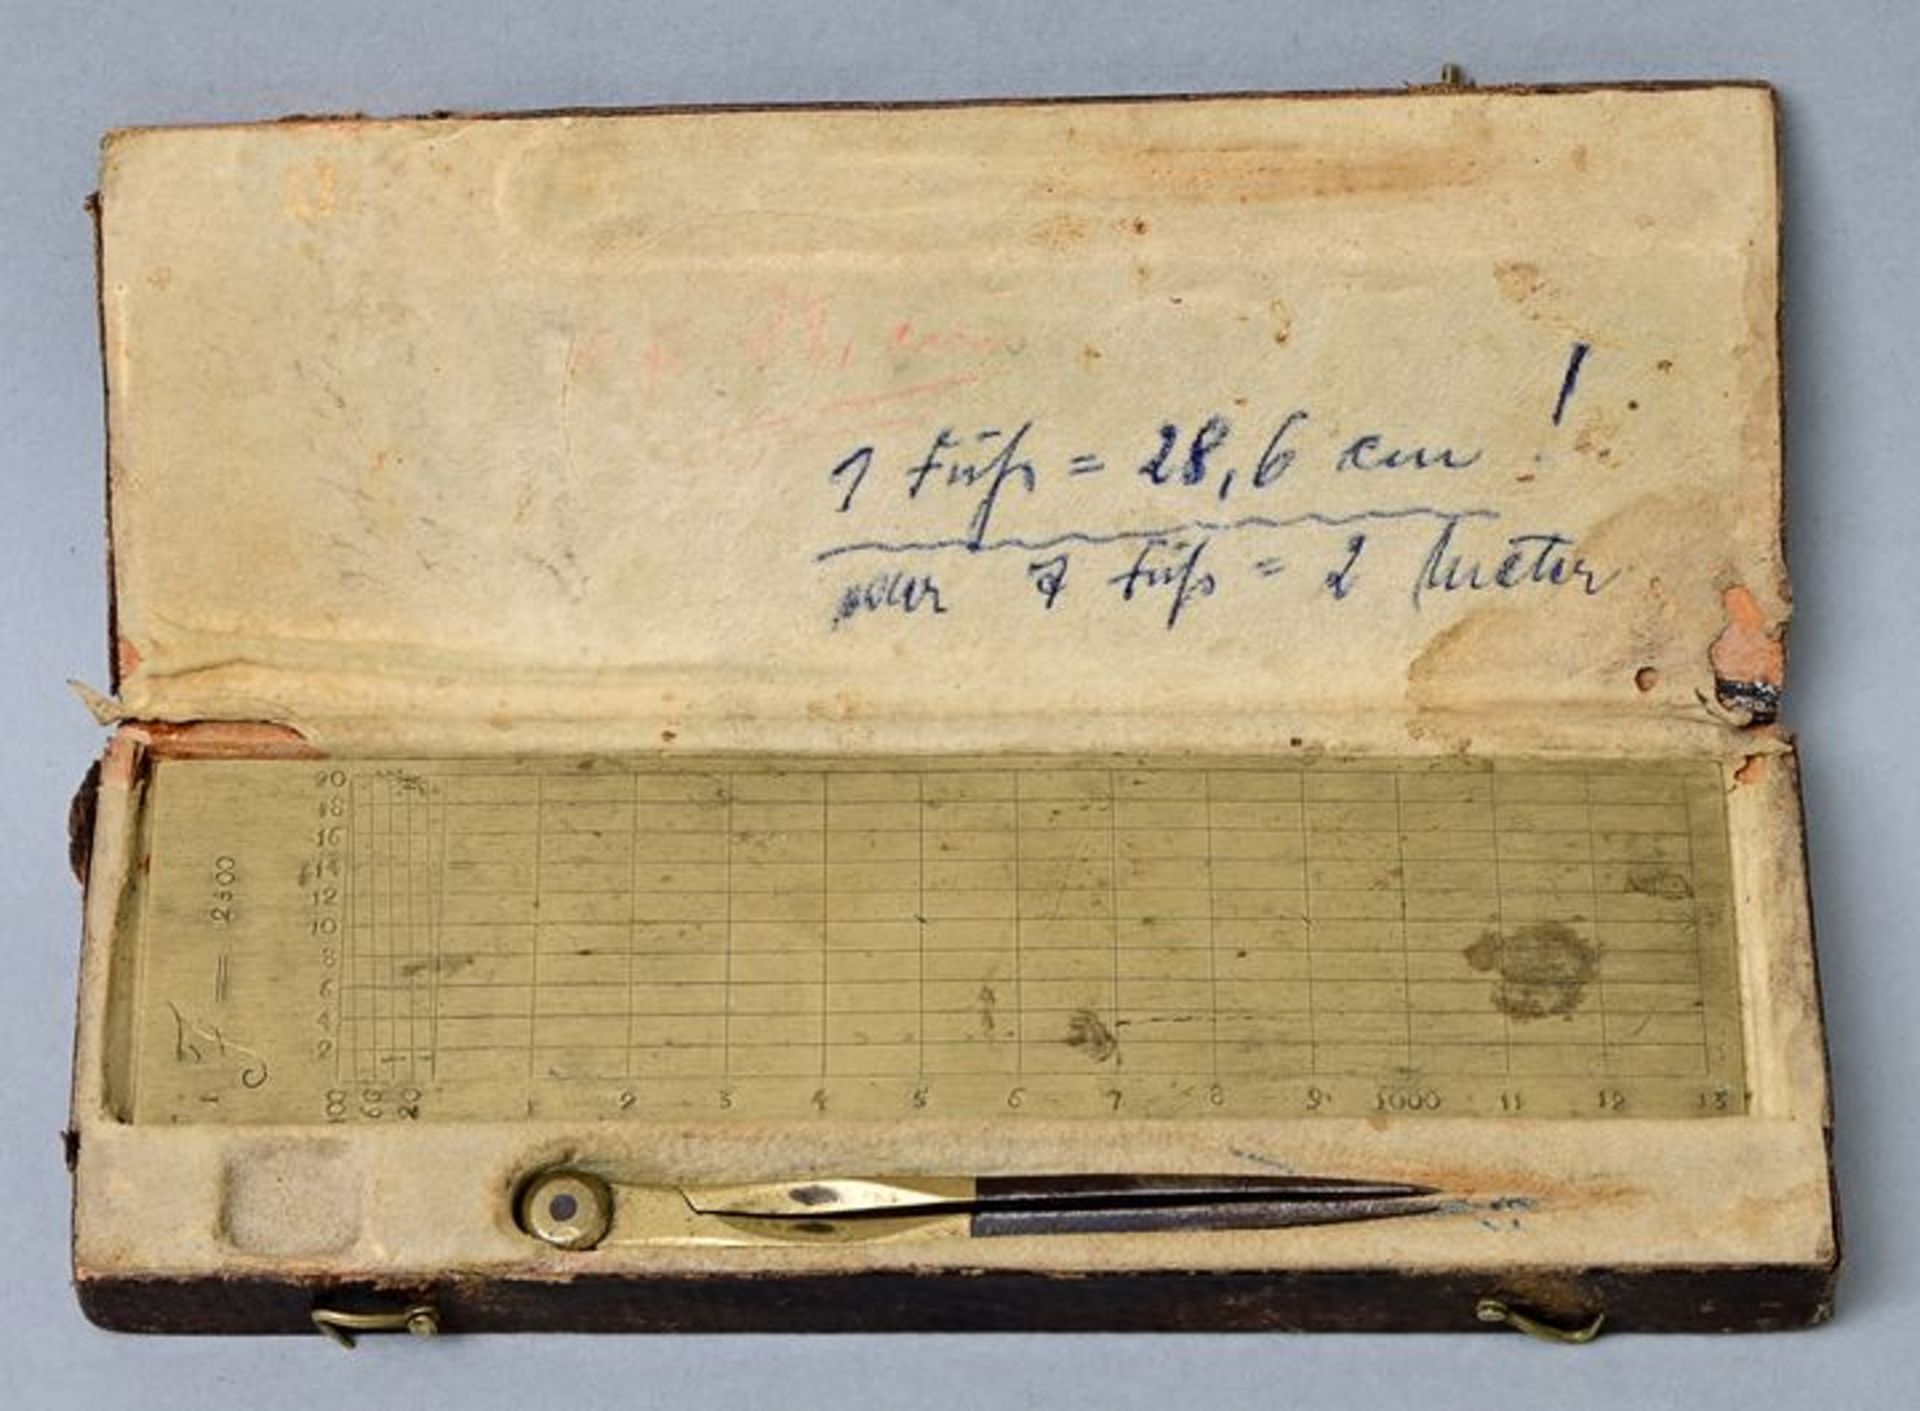 1 Fuß = 28,6 cm !
oder 7 Fuß = 2 Meter
20
18
16
14
12
10
8
6
4
2
= 2500
100 60 20 1 2 3 4 5 6 7 8 9 1000 11 12 13